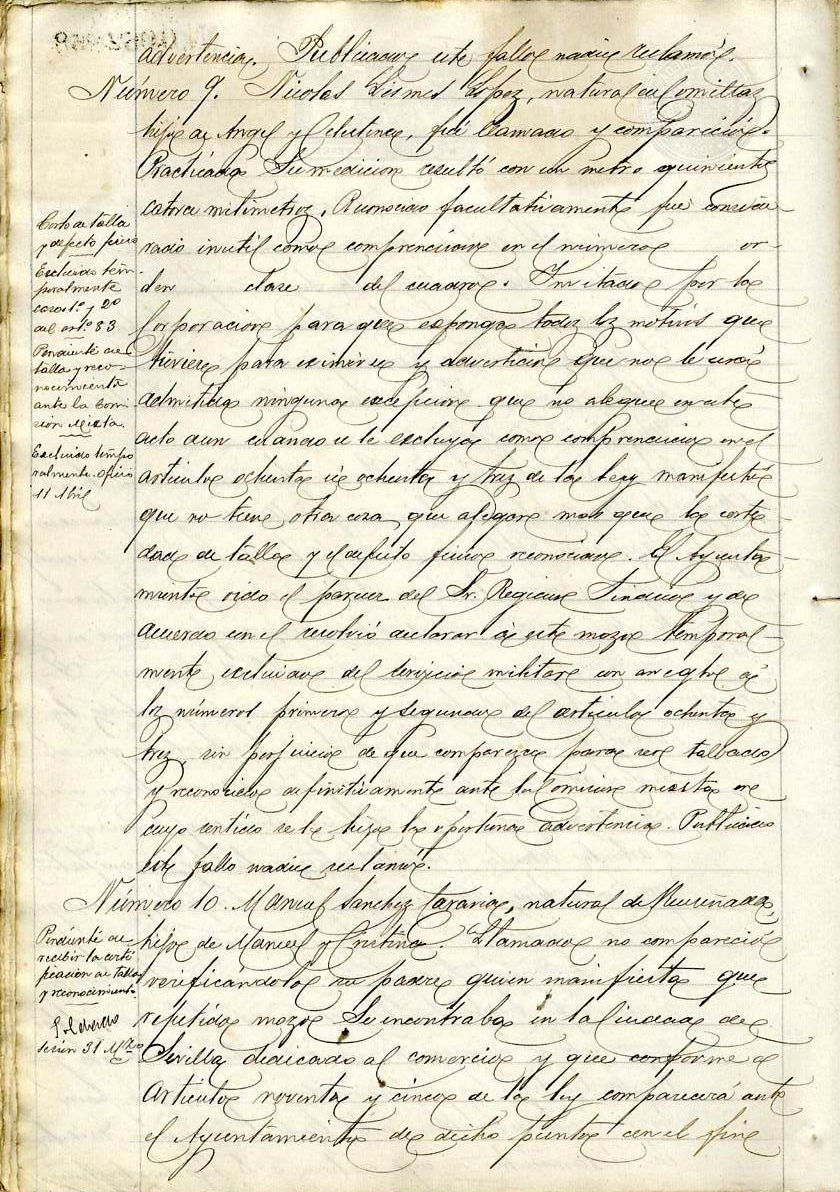 advertencia. Publicado este fallo nadie reclamó.
Número 9. Nicolás Lismes López, natural de Comillas
hijo de Angel y Celestina, fué llamado y compareció.
Practicada su medicion resultó con un metro quinientos
catorce milímetros. Reconocido facultativamente fué conside
rado inutil como comprendido en el número or
den clase del cuadro. Invitado por la
Corporacion para que esponga todos los motivos que
tuviere para eximirse y advertido que no le será
admitida ninguna escepcion que no alegue en este
acto aun cuando se le excluya como comprendido en el
artículo ochenta ú ochenta y tres de la ley manifestó
que no tiene otra cosa que alegar mas que la corte
dad de talla y el defecto físico reconocido. El Ayunta-
miento oido el parecer del Sr. Regidor Síndico y de
acuerdo con él resolvió declarar á este mozo temporal-
mente escluido del servicio militar con arreglo á
los números primero y segundo del artículo ochenta y
tres, sin perjuicio de que comparezca para ser tallado
y reconocido definitivamente ante la Comision mixta en
cuyo sentido se le hizo la oportuna advertencia. Publicado
este fallo nadie reclamó.
Corto de talla
y defecto físico
Excluido tem-
poralmente
casos 1.º y 2º
del art.º 83
Pendiente de
talla y reco-
nocimiento
ante la Comi
sion Mixta.
Excluido tempo
ralmente. oficio
11 Abril
Número 10. Manuel Sanchez Taravia, natural de Ruiseñada,
hijo de Manuel y Cristina. Llamado no compareció
verificándolo su padre quien manifiesta que
repetido mozo se encontraba en la Ciudad de
Sevilla dedicado al comercio y que conforme al
Artículo noventa y cinco de la ley comparecerá ante
el Ayuntamiento de dicho punto con el fin
Pendiente de
recibir la certi
ficacion de talla
y reconocimiento
sesion 31 Mzo